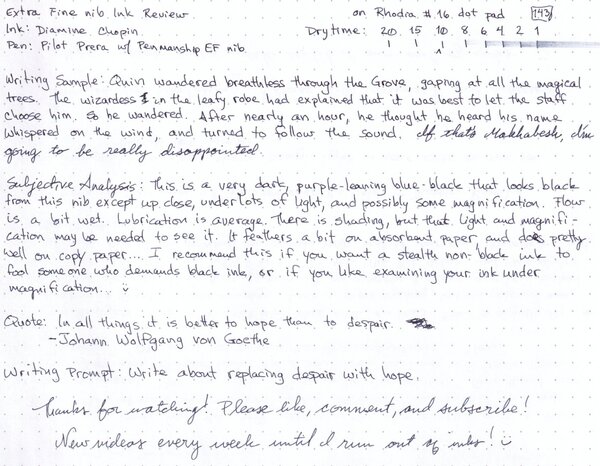 Extra Fine nib Ink Review on Rhodia #16 dot pad 143
Ink: Diamine Chopin Dry time: 20 15 10 8 6 4 2 1
Pen: Pilot Prera w/ Penmanship EF nib
Writing Sample: Quin wandered breathless through the Grove, gaping at all the magical
trees. The wizardess in the leafy robe had explained that it was best to let the staff
choose him. So he wandered. After nearly an hour, he thought he heard his name
whispered on the wind, and turned to follow the sound. If that's Makhabesh, I'm
going to be really disappointed.
Subjective Analysis: This is a very dark, purple-leaning blue-black that looks black
from this nib except up close, under lots of light, and possibly some magnification. Flow
is a bit wet. Lubrication is average. There is shading, but that light and magnifi-
cation may be needed to see it. It feathers a bit on absorbent paper and does pretty
well on copy paper... I recommend this if you want a stealth non-black ink to
fool someone who demands black ink, or if you like examining your ink under
magnification... :)
Quote: In all things it is better to hope than to despair.
-Johann Wolfgang von Goethe
Writing Prompt: Write about replacing despair with hope.
Thanks for watching! Please like, comment, and subscribe!
New videos every week until I run out of inks! :)